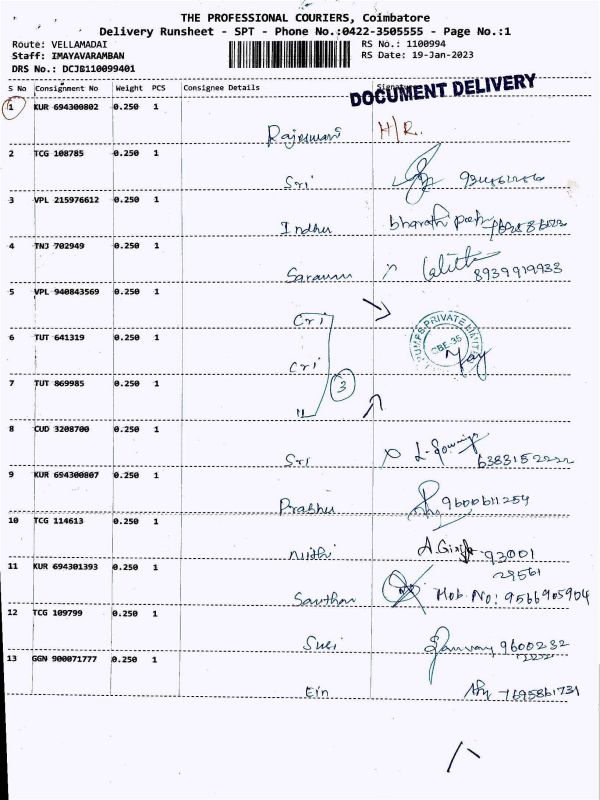 THE PROFESSIONAL COURIERS, Coimbatore
Delivery Runsheet - SPT - Phone No.:0422-3505555 - Page No.:1
Route: VELLAMADAI RS No.: 1100994
Staff: IMAYAVARAMBAN RS Date: 19-Jan-2023
DRS No.: DCJB110099401
S No Consignment No Weight PCS Consignee Details Signature
DOCUMENT DELIVERY
1 KUR 694300802 0.250 1
Rajeswari H/R.
2 TCG 108785 0.250 1
Sri
3 VPL 215976612 0.250 1
Indhu bharath
4 TNJ 702949 0.250 1
Saravanan Lalitha 8939919933
5 VPL 940843569 0.250 1
Cri
PUMPS PRIVATE LIMITED
CBE-35
6 TUT 641319 0.250 1
Cri
7 TUT 869985 0.250 1
3
"
8 CUD 3208700 0.250 1
Sri 6383152222
9 KUR 694300807 0.250 1
Prabhu 9600611254
10 TCG 114613 0.250 1
Nidhi A. 93001
29561
11 KUR 694301393 0.250 1
Santhosh Mob. No: 9566905904
12 TCG 109799 0.250 1
Suei 9600232
13 GGN 900071777 0.250 1
Ein 7695861731